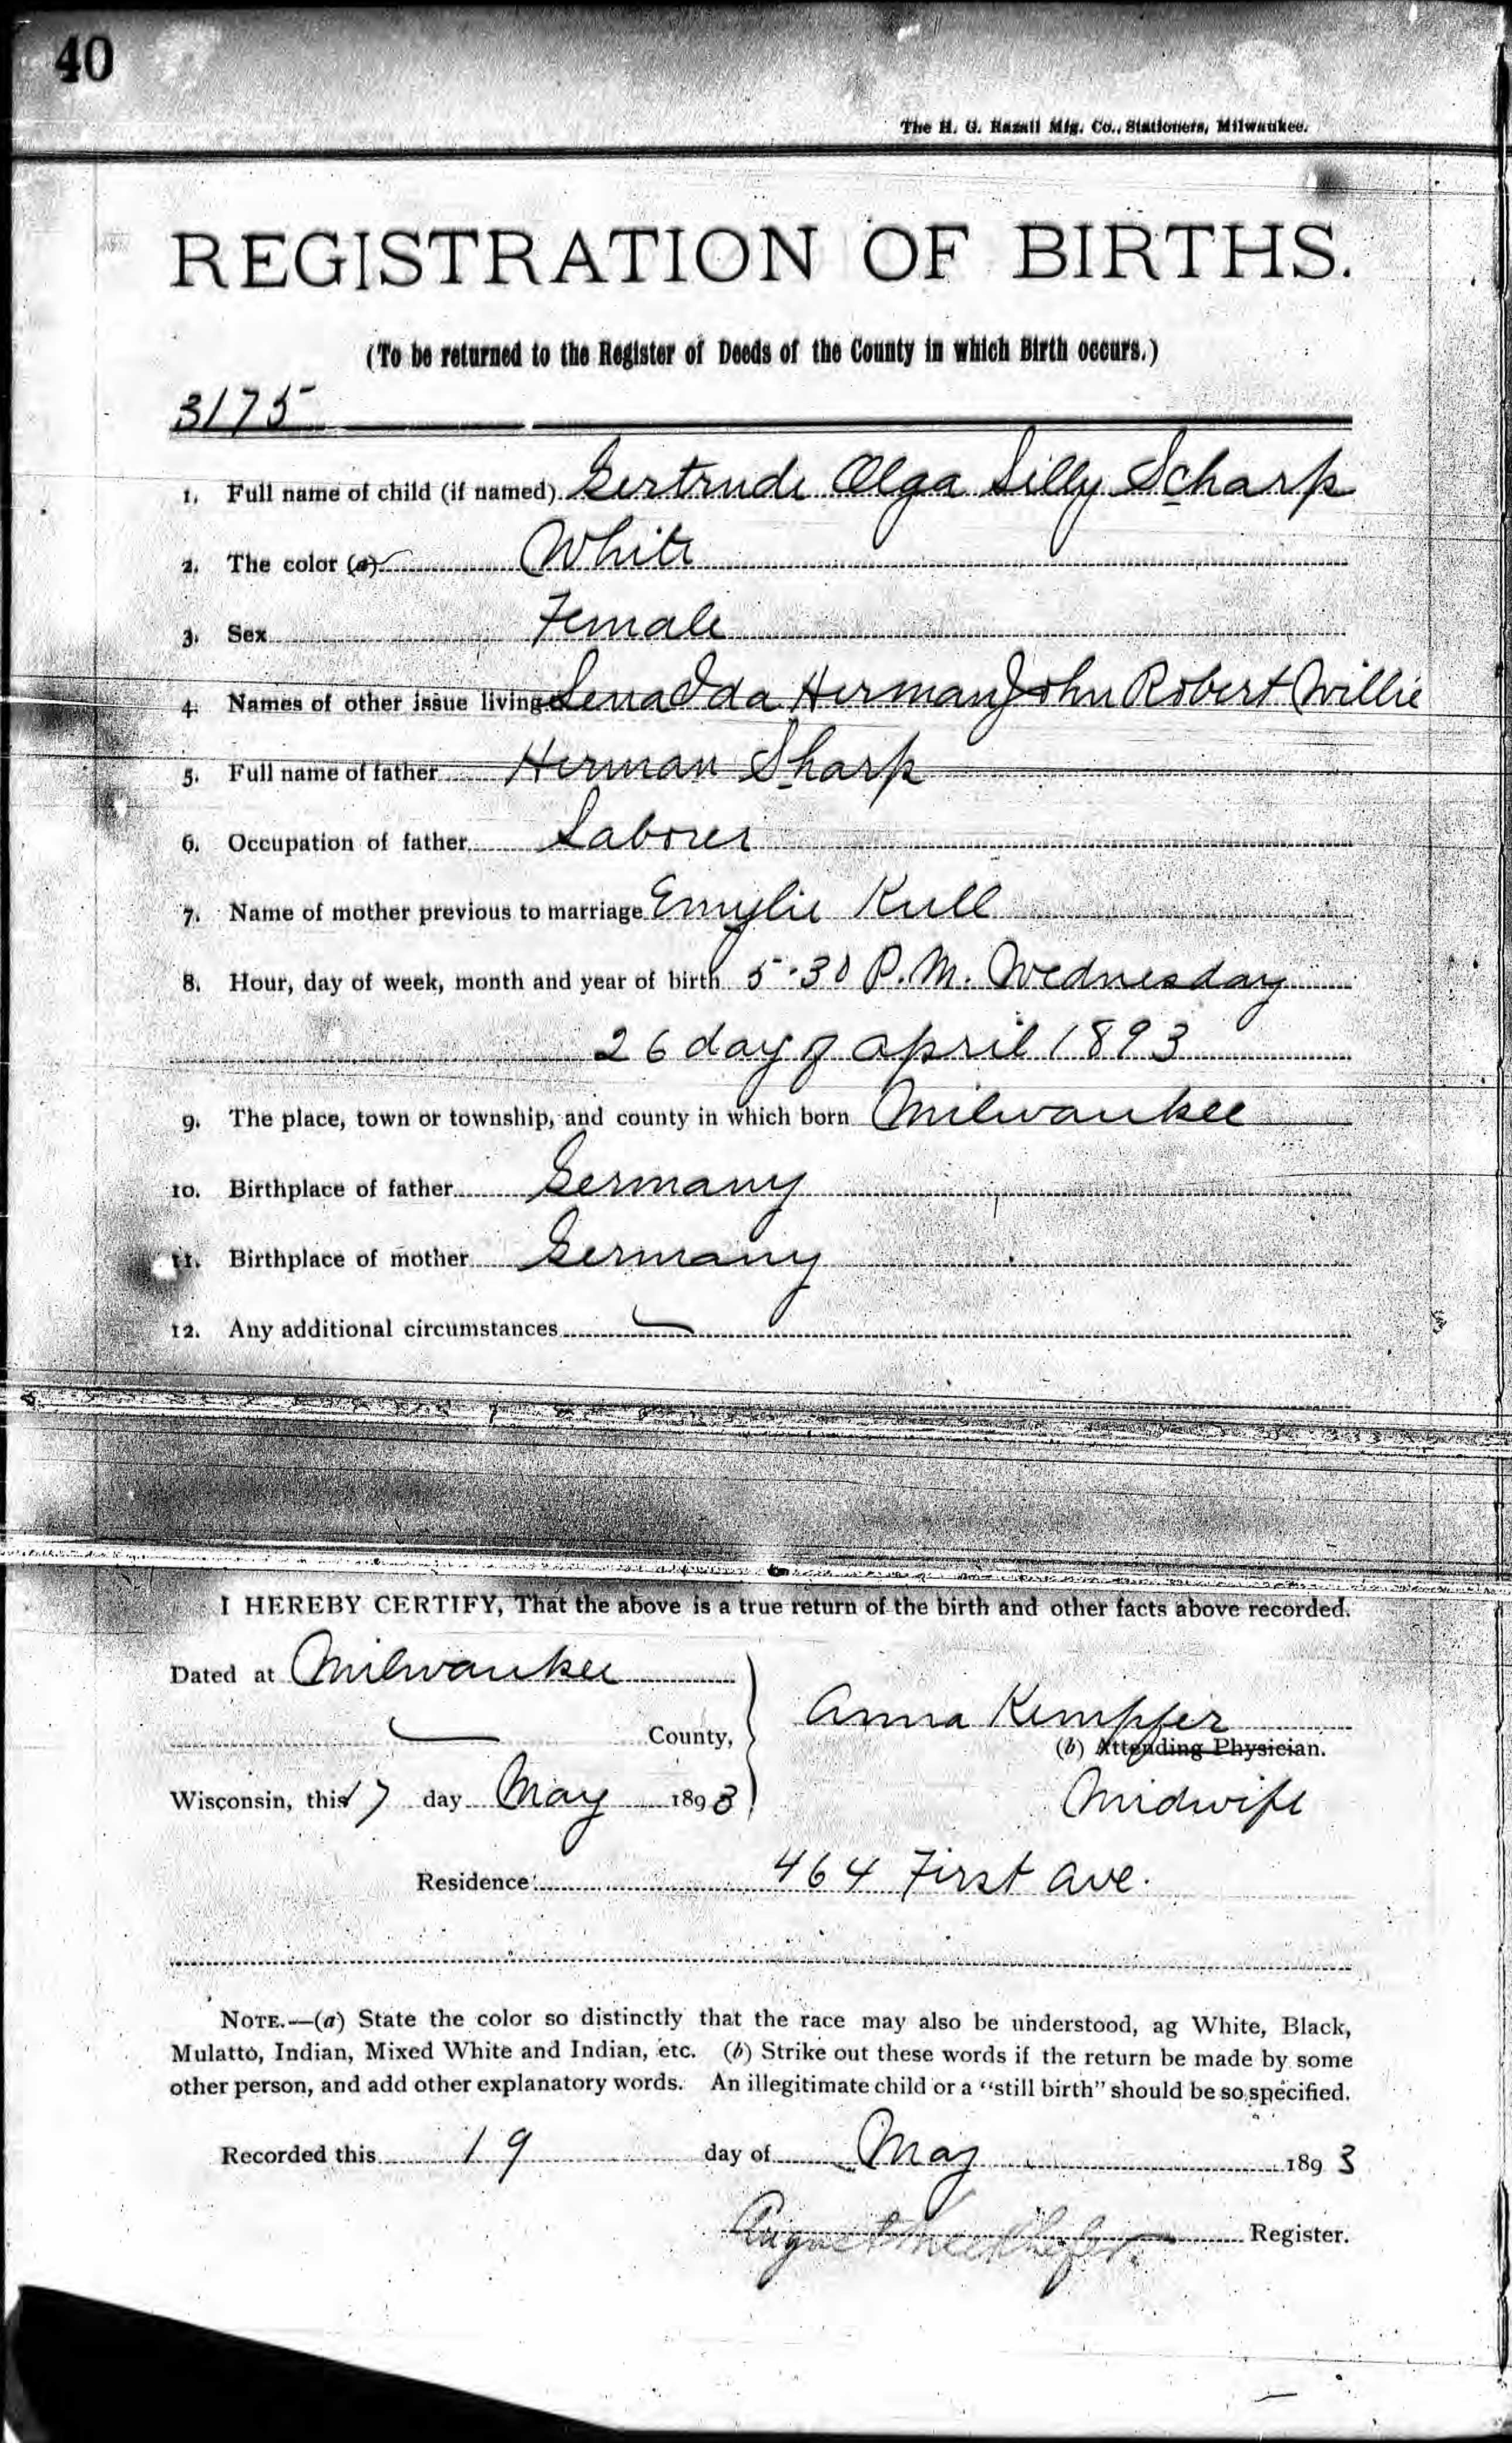 40
The H. G. Razall Mfg. Co., Stationers, Milwaukee.
REGISTRATION OF BIRTHS.
(To be returned to the Register of Deeds of the County in which Birth occurs.)
3175
1. Full name of child (if named) Gertrude Olga Lilly Scharp
2. The color (a) White
3. Sex Female
4. Names of other issue living Lena Ida Herman John Robert Willie
5. Full name of father Herman Sharp
6. Occupation of father Laborer
7. Name of mother previous to marriage Emylie Kull
8. Hour, day of week, month and year of birth 5-30 P.M. Wednesday
26 day of april 1893
9. The place, town or township, and county in which born Milwaukee
10. Birthplace of father Germany
11. Birthplace of mother Germany
12. Any additional circumstances
I HEREBY CERTIFY, That the above is a true return of the birth and other facts above recorded.
Dated at Milwaukee
County,
Anna Kempfer
(b) Attending Physician.
Wisconsin, this 17 day May 1893
Midwife
Residence 464 First Ave.
NOTE.—(a) State the color so distinctly that the race may also be understood, ag White, Black,
Mulatto, Indian, Mixed White and Indian, etc. (b) Strike out these words if the return be made by some
other person, and add other explanatory words. An illegitimate child or a "still birth" should be so specified.
Recorded this 19 day of May 1893
August Register.